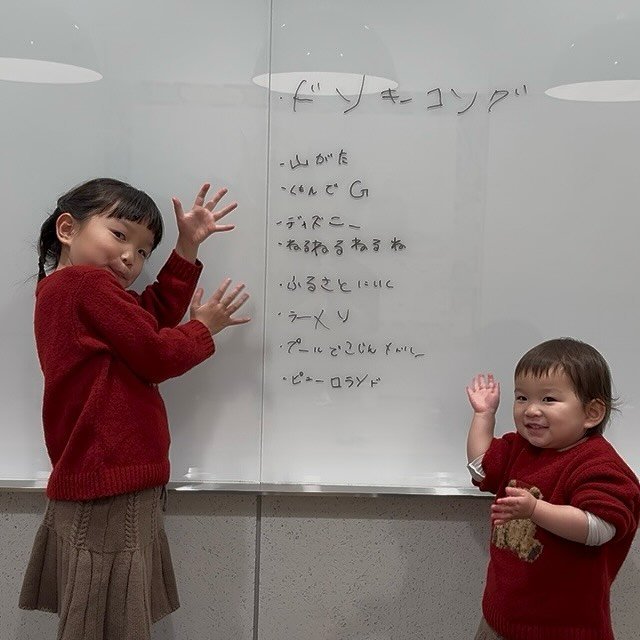 ・ドンキーコング
・山がた
・くもんでG
・ディズニー
・ねるねるねるね
・ふるさとにいく
・ラーメン
・プールでこじんメドレー
・ピューロランド